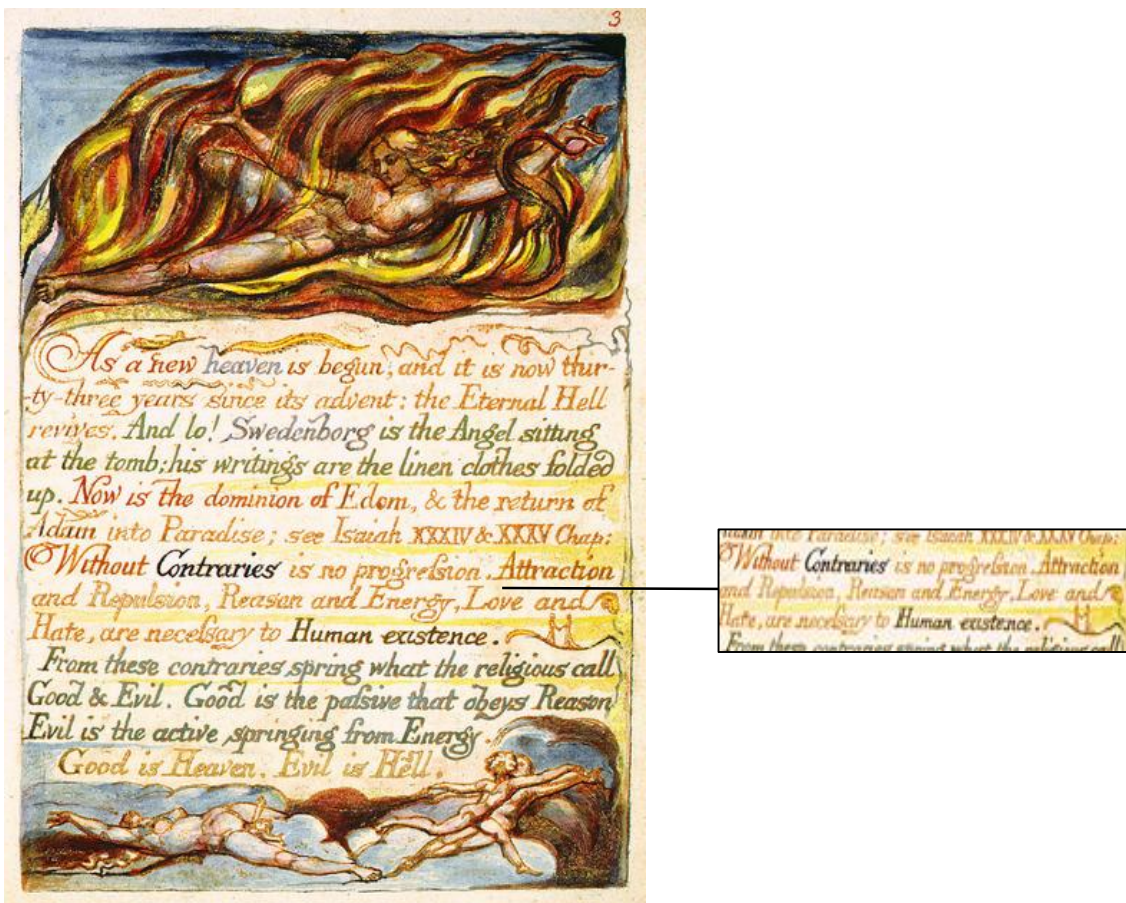 3
As a new heaven is begun, and it is now thir-
ty-three years since its advent: the Eternal Hell
revives. And lo! Swedenborg is the Angel sitting
at the tomb; his writings are the linen clothes folded
up. Now is the dominion of Edom, & the return of
Adam into Paradise; see Isaiah XXXIV & XXXV Chap:
Without Contraries is no progreſsion. Attraction
and Repulsion, Reason and Energy, Love and
Hate, are neceſsary to Human existence.
From these contraries spring what the religious call
Good & Evil. Good is the paſsive that obeys Reason
Evil is the active springing from Energy.
Good is Heaven. Evil is Hell.
Adam into Paradise; see Isaiah XXXIV & XXXV Chap:
Without Contraries is no progreſsion. Attraction
and Repulsion, Reason and Energy, Love and
Hate, are neceſsary to Human existence.
From these contraries spring what the religious call